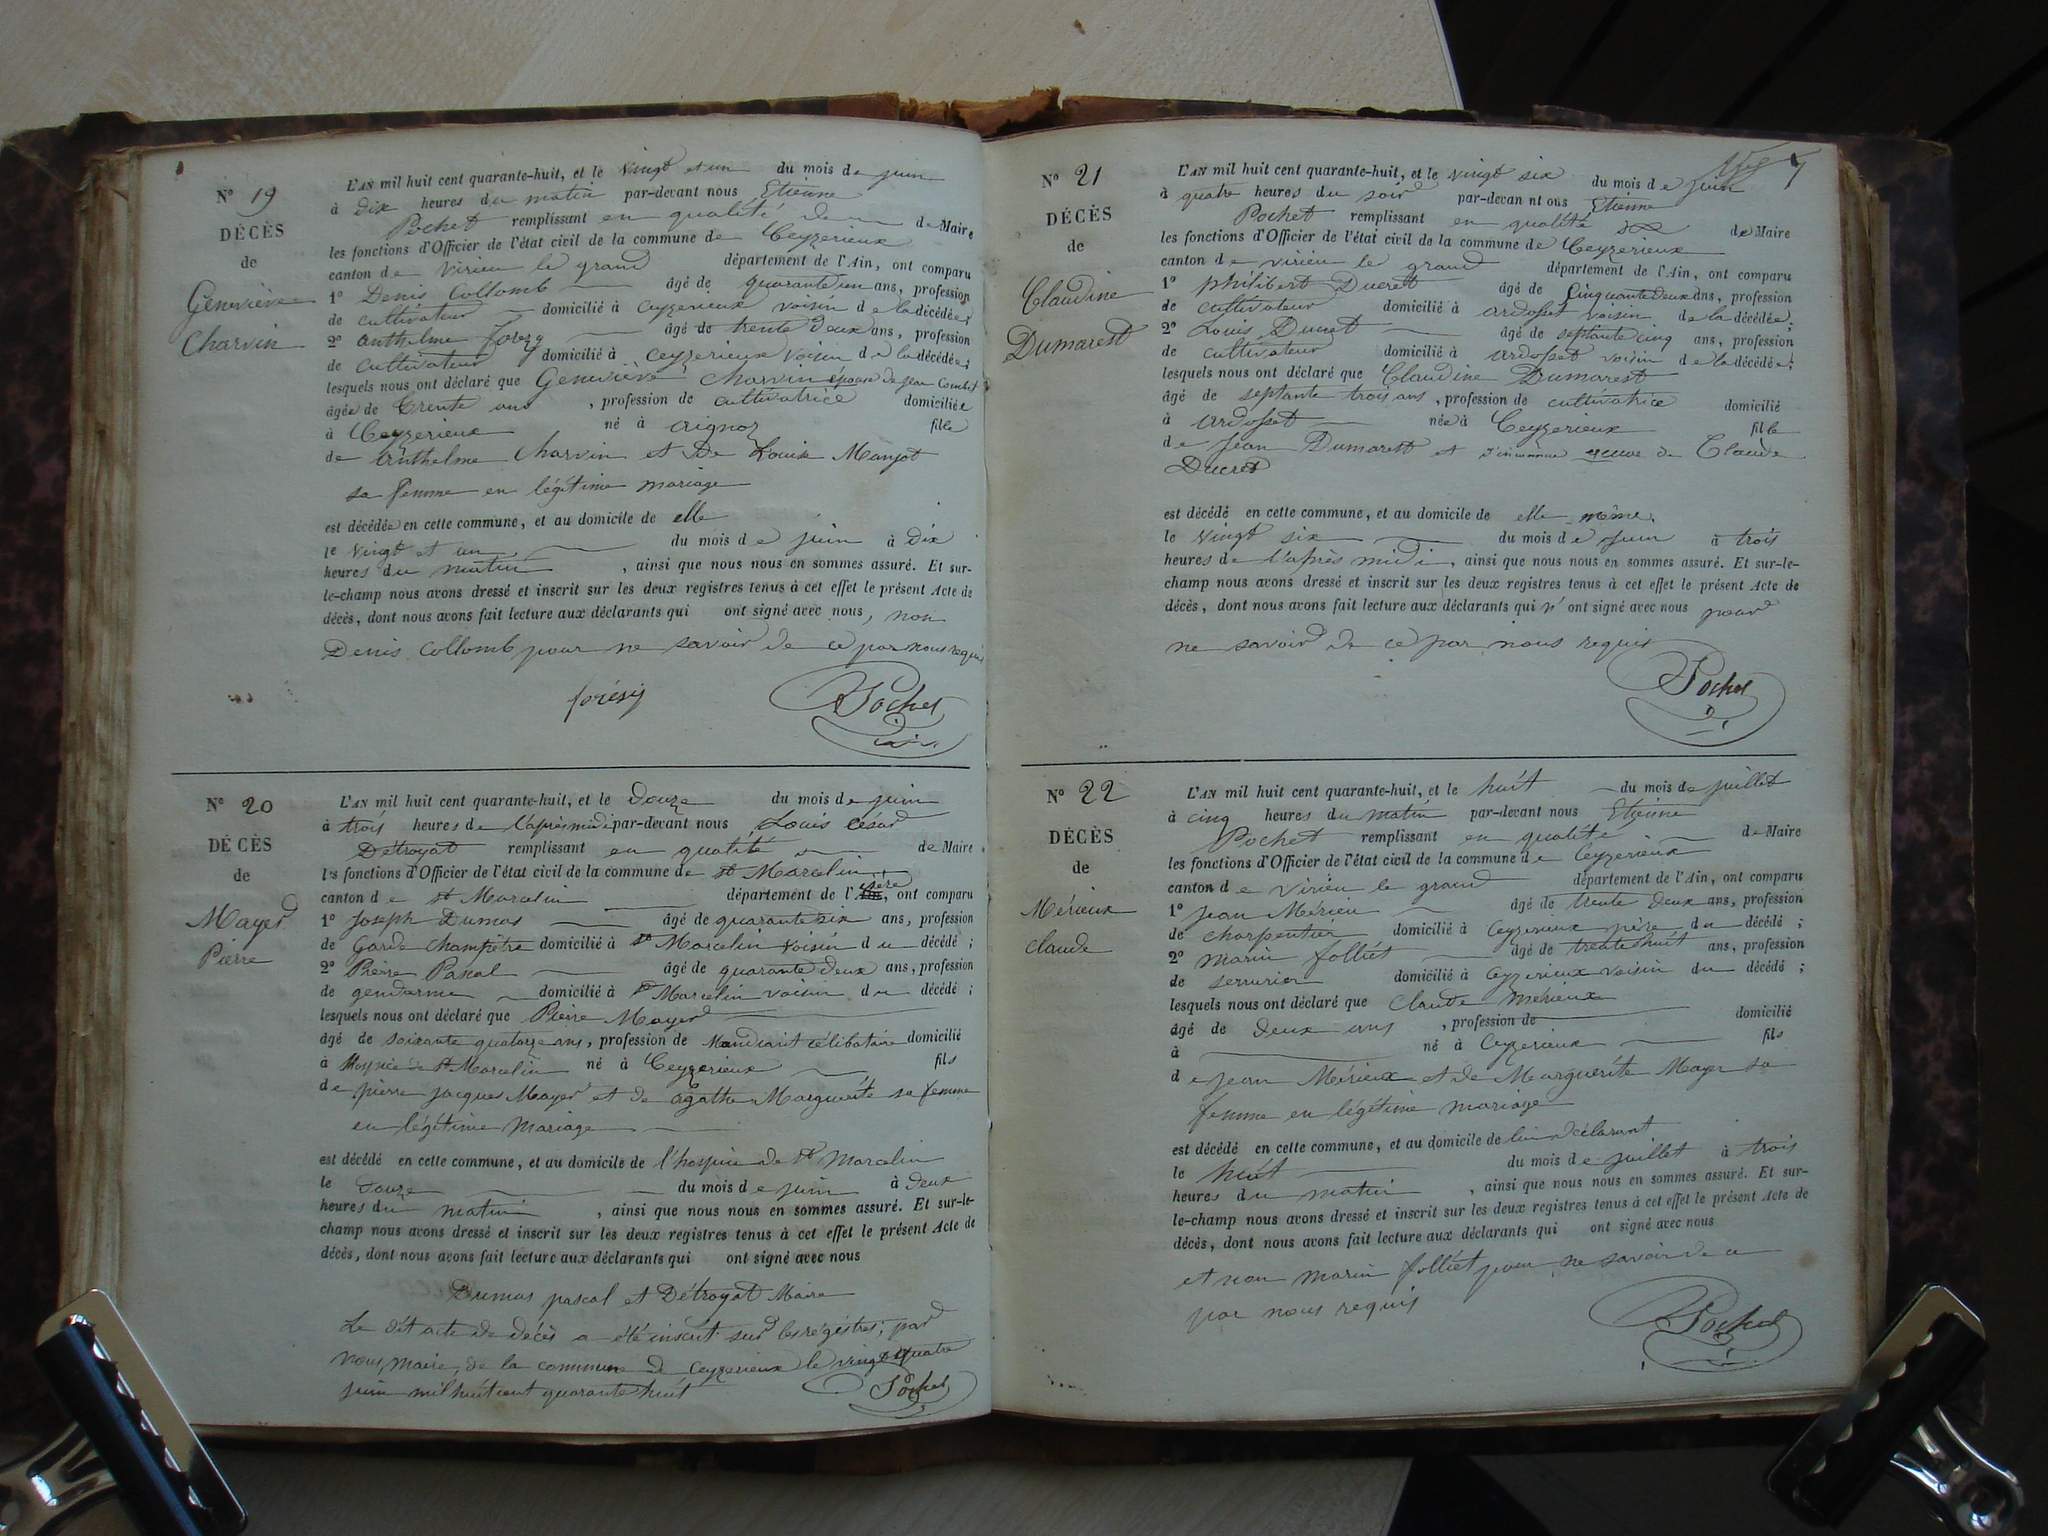 N° 19
DÉCÈS
de
Geneviève
Charvin
L'AN mil huit cent quarante-huit, et le vingt et un du mois de juin
à dix heures du matin par-devant nous Etienne
Pochet remplissant en qualité de de Maire
les fonctions d'Officier de l'état civil de la commune de Ceyzerieux
canton de virieu le grand département de l'Ain, ont comparu
1° Denis Collomb âgé de quarante un ans, profession
de cultivateur domicilié à ceyzerieux voisin de la décédée;
2° anthelme âgé de trente deux ans, profession
de cultivateur domicilié à ceyzerieux voisin de la décédée;
lesquels nous ont déclaré que Geneviève Charvin épouse de jean
âgée de trente ans , profession de cultivatrice domiciliée
à Ceyzerieux né à aignoz fille
de anthelme Charvin et de Louise
sa femme en légitime mariage
est décédée en cette commune, et au domicile de elle
le vingt et un du mois de juin à dix
heures du matin , ainsi que nous nous en sommes assuré. Et sur-
le-champ nous avons dressé et inscrit sur les deux registres tenus à cet effet le présent Acte de
décès, dont nous avons fait lecture aux déclarants qui ont signé avec nous, non
Denis Collomb pour ne savoir de ce par nous requis
Pochet
N° 20
DÉCÈS
de
Mayer
Pierre
L'AN mil huit cent quarante-huit, et le douze du mois de juin
à trois heures de l'après midi par-devant nous Louis César
Détroyat remplissant en qualité de Maire
les fonctions d'Officier de l'état civil de la commune de st Marcelin
canton de st Marcelin département de l'isère, ont comparu
1° Joseph Dumas âgé de quarante six ans, profession
de Garde champêtre domicilié à st Marcelin voisin du décédé;
2° Pierre Pascal âgé de quarante deux ans, profession
de gendarme domicilié à st Marcelin voisin du décédé;
lesquels nous ont déclaré que Pierre Mayer
âgé de soixante quatorze ans, profession de Mandiant célibataire domicilié
à hospice de st Marcelin né à Ceyzerieux fils
de pierre jacques Mayer et de agathe Marguerite sa femme
en légitime Mariage
est décédé en cette commune, et au domicile de l'hospice de st Marcelin
le douze du mois de juin à deux
heures du matin , ainsi que nous nous en sommes assuré. Et sur-le-
champ nous avons dressé et inscrit sur les deux registres tenus à cet effet le présent Acte de
décès, dont nous avons fait lecture aux déclarants qui ont signé avec nous
Dumas pascal et Détroyat Maire
Le dit acte de décès a été inscrit sur les régistres, par
nous, maire, de la commune de Ceyzerieux le vingt quatre
juin mil huit cent quarante huit Pochet
N° 21
DÉCÈS
de
Claudine
Dumarest
L'AN mil huit cent quarante-huit, et le vingt six du mois de juin
à quatre heures du soir par-devant nous Etienne
Pochet remplissant en qualité de Maire
les fonctions d'Officier de l'état civil de la commune de Ceyzerieux
canton de virieu le grand département de l'Ain, ont comparu
1° philibert Ducret âgé de Cinquante deux ans, profession
de cultivateur domicilié à ardosset voisin de la décédée;
2° Louis Ducret âgé de septante cinq ans, profession
de cultivateur domicilié à ardosset voisin de la décédée;
lesquels nous ont déclaré que Claudine Dumarest
âgé de septante trois ans, profession de cultivatrice domicilié
à ardosset née à Ceyzerieux fille
de Jean Dumarest et d'inconnue veuve de Claude
Ducret
est décédé en cette commune, et au domicile de elle même,
le vingt six du mois de juin à trois
heures de l'après midi, ainsi que nous nous en sommes assuré. Et sur-le-
champ nous avons dressé et inscrit sur les deux registres tenus à cet effet le présent Acte de
décès, dont nous avons fait lecture aux déclarants qui n'ont signé avec nous pour
ne savoir de ce par nous requis
Pochet
N° 22
DÉCÈS
de
Mérieux
claude
L'AN mil huit cent quarante-huit, et le huit du mois de juillet
à cinq heures du matin par-devant nous Etienne
Pochet remplissant en qualité de Maire
les fonctions d'Officier de l'état civil de la commune de Ceyzerieux
canton de virieu le grand département de l'Ain, ont comparu
1° jean Mérieu âgé de trente deux ans, profession
de charpentier domicilié à Ceyzerieux père du décédé;
2° marin folliet âgé de trente huit ans, profession
de serrurier domicilié à Ceyzerieux voisin du décédé;
lesquels nous ont déclaré que Claude Mérieux
âgé de deux ans , profession de domicilié
à né à Ceyzerieux fils
de jean Mérieux et de Marguerite Mayer sa
femme en légitime mariage
est décédé en cette commune, et au domicile de
le huit du mois de juillet à trois
heures du matin , ainsi que nous nous en sommes assuré. Et sur-
le-champ nous avons dressé et inscrit sur les deux registres tenus à cet effet le présent Acte de
décès, dont nous avons fait lecture aux déclarants qui ont signé avec nous
et non marin folliet pour ne savoir de ce
par nous requis
Pochet